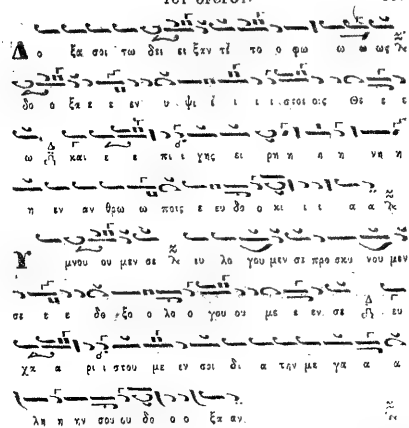 Δ ο ξα σοι τω δει ξαν τι το ο φω ω ω ως
δο ο ξα ε ε εν υ ψι ι ι ι ι στοις οις Θε ε ε
ω και ε ε πι γης ει ρη η η νη η
η εν αν θρω ω ποις ε ευ δο ο κι ι ε α α
Υ μνου ου μεν σε ευ λο γου μεν σε προ σκυ νου μεν
σε ε ε δο ξο ο λο ο γου ου με ε εν σε ευ
χα α ρι ι στου με εν σοι δι α την με γα α α
λη η ην σου ου δο ο ο ξα αν.